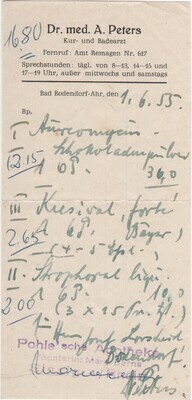 1680
Dr. med. A. Peters
Kur- und Badearzt
Fernruf: Amt Remagen Nr. 617
Sprechstunden: tägl. von 8—13, 14—15 und
17—19 Uhr, außer mittwochs und samstags
Bad Bodendorf-Ahr, den 1.6.55.
Rp.
I Aureomycin-
Schokoladenpulver
12.15 1 OP. 36,0
III Kresival, forte
2.65 1 OP. (Bayer)
II. Strophoral liqu.
2.00 1 OP. 10,0
Pohle'sche Apotheke
Bodendorf.
Peters.